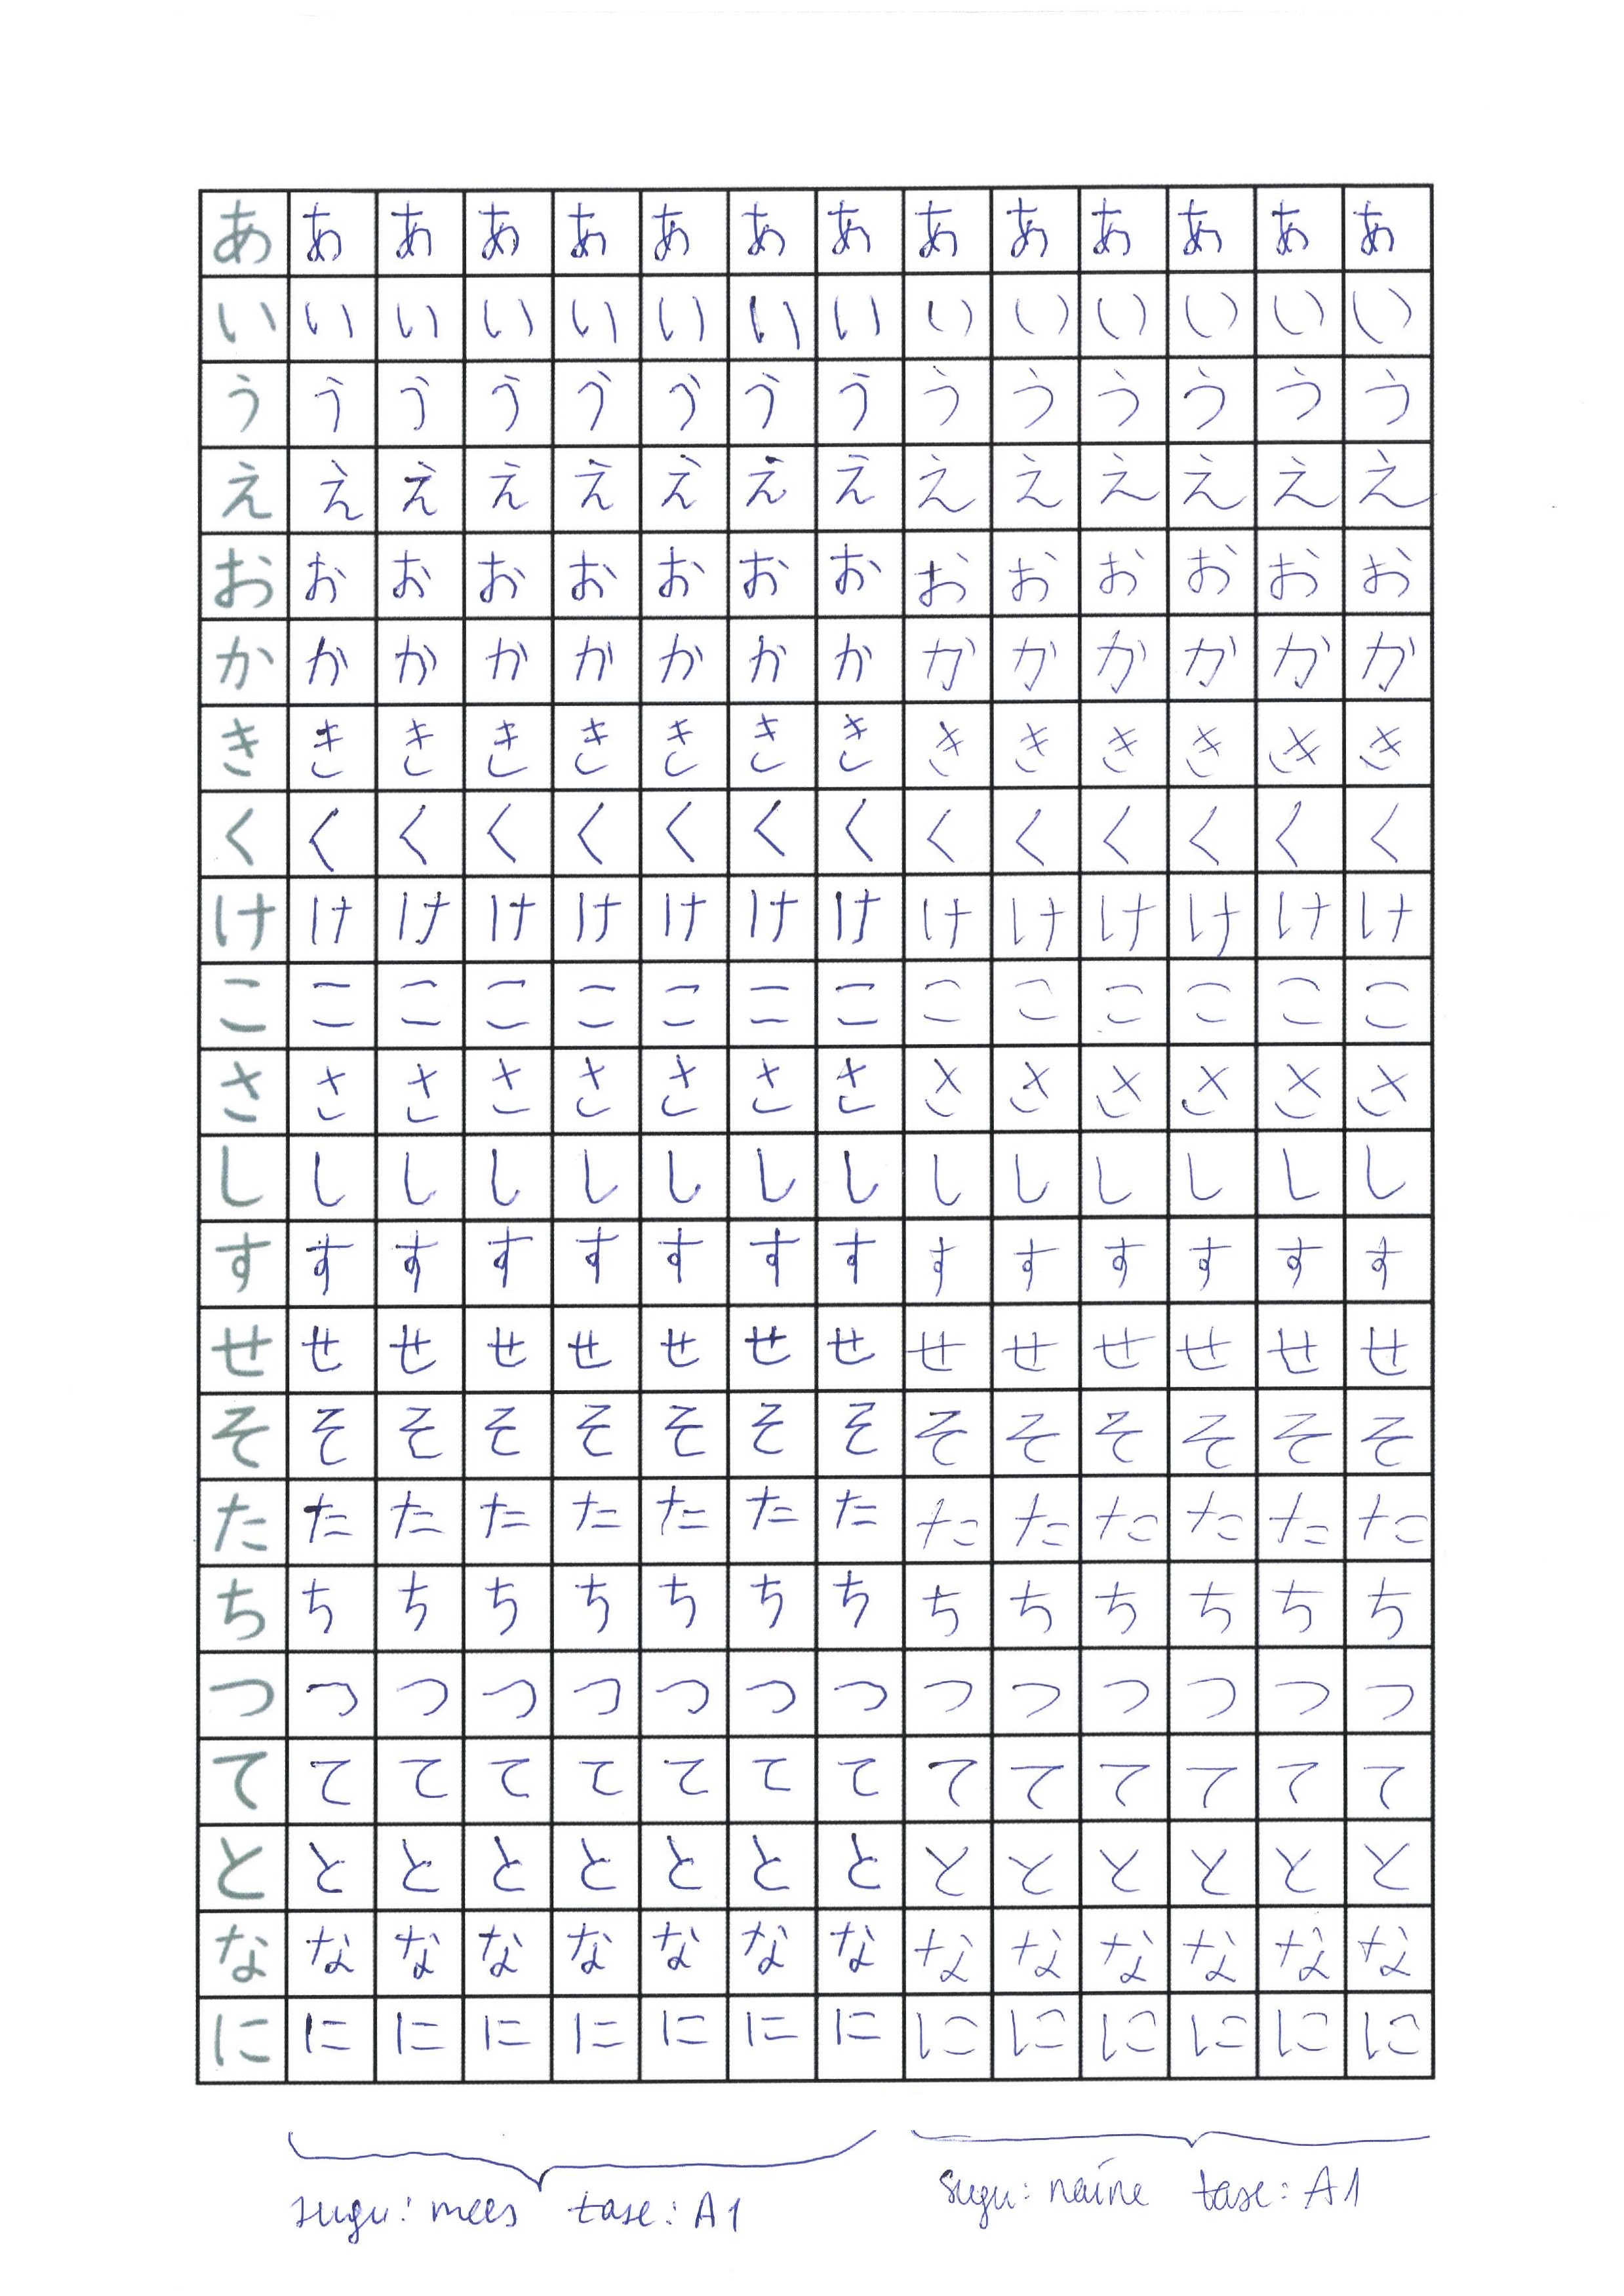 あ あ あ あ あ あ あ あ あ あ あ あ あ あ
い い い い い い い い い い い い い い
う う う う う う う う う う う う う う
え え え え え え え え え え え え え え
お お お お お お お お お お お お お お
か か か か か か か か か か か か か か
き き き き き き き き き き き き き き
く く く く く く く く く く く く く く
け け け け け け け け け け け け け け
こ こ こ こ こ こ こ こ こ こ こ こ こ こ
さ さ さ さ さ さ さ さ さ さ さ さ さ さ
し し し し し し し し し し し し し し
す す す す す す す す す す す す す す
せ せ せ せ せ せ せ せ せ せ せ せ せ せ
そ そ そ そ そ そ そ そ そ そ そ そ そ そ
た た た た た た た た た た た た た た
ち ち ち ち ち ち ち ち ち ち ち ち ち ち
つ つ つ つ つ つ つ つ つ つ つ つ つ つ
て て て て て て て て て て て て て て
と と と と と と と と と と と と と と
な な な な な な な な な な な な な な
に に に に に に に に に に に に に に
sugu: mees tase: A1 sugu: naine tase: A1